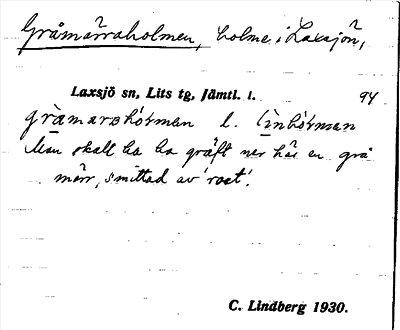 Gråmärraholmen, holme i Laxsjön,
Laxsjö sn, Lits tg, Jämtl. l. 94
gràmarshól̀man l. linhól̀man
Man skall ha ha gräft ner här en grå
märr, smittad av 'rots'.
C. Lindberg 1930.